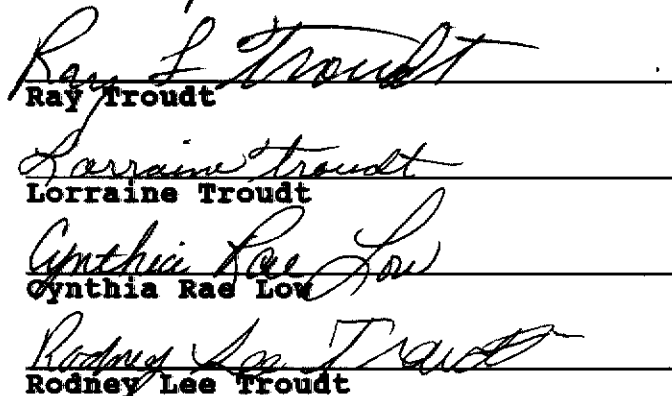 Ray L Troudt
Ray Troudt
Lorraine Troudt
Lorraine Troudt
Cynthia Rae Low
Cynthia Rae Low
Rodney Lee Troudt
Rodney Lee Troudt